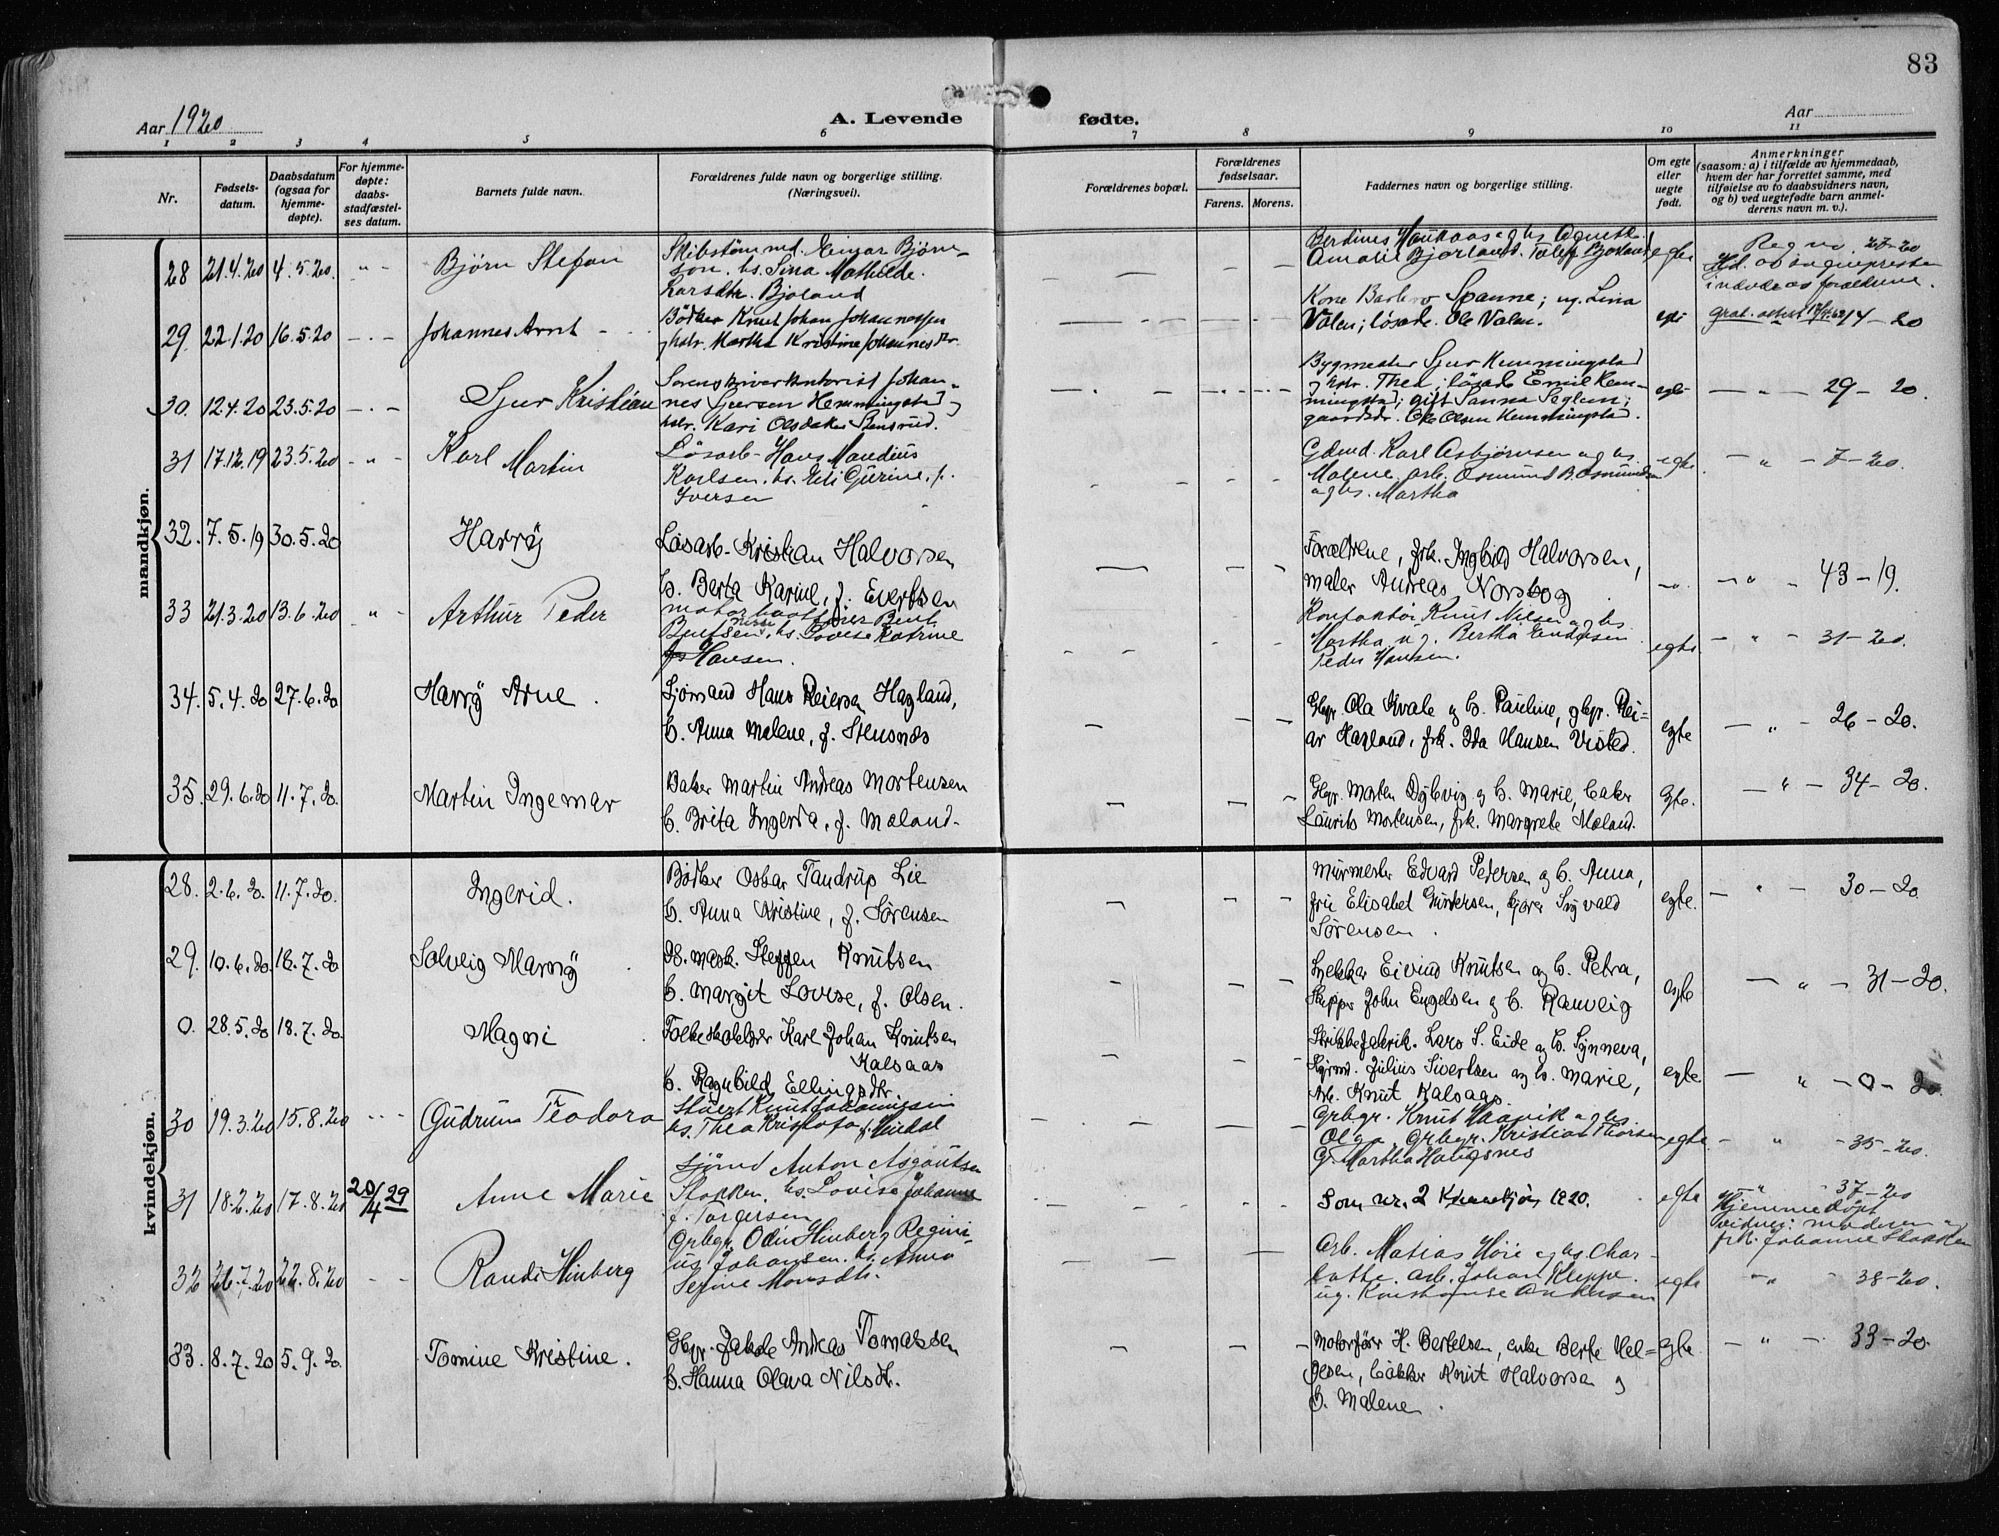 83
Aar 1920
A. Levende fødte.
Aar
1 2 3 4 5 6 7 8 9 10 11
Nr.
Fødsels-
datum.
Daabsdatum
(ogsaa for
hjemme-
døpte).
For hjemme-
døpte:
daabs-
stadfæstel-
ses datum.
Barnets fulde navn.
Forældrenes fulde navn og borgerlige stilling.
(Næringsvei).
Forældrenes bopæl.
Forældrenes
fødselsaar.
Farens. Morens.
Faddernes navn og borgerlige stilling.
Om egte
eller
uegte
født.
Anmerkninger
(saasom: a) i tilfælde av hjemmedaab,
hvem der har forrettet samme, med
tilføielse av to daabsvidners navn,
og b) ved uegtefødte barn anmel-
derens navn m. v.).
mandkjøn.
28 21.4.20 4.5.20. Bjørn Stefan
Einar Bjørn-
son, hs. Lina Mathilde
Larsdtr. Bjoland
egte
29. 22.1.20 16.5.20 Johannes Arnt
Bødker Knut Johan Johannessen
Martha Kristine Johannesdtr.
Kone Spanne; ug. Lina
Valen; løsarb. Ole Valen.
14-20
30. 12.4.20 23.5.20 Sjur Kristian
Johan-
nes Sjursen Hemmingstad
Kari Olsdatter
Bygmester Sjur Hemmingstad
Thea; løsarb. Emil Hem-
mingstad; gift Sanna Seglem;
Ole Olsen Hemmingstad.
29-20
31 17.12.19 23.5.20 Karl Martin
Løsarb. Hans Mandius
Karlsen, hs. Eli Gurine, f.
Iversen
Karl Asbjørnsen og hs.
Malene, arb. Osmund B. Osmundsen
og hs. Martha
egte
7-20.
32. 7.5.19 30.5.20 Harry
Løsarb. Kristian Halvorsen
h. Berta Karine, f. Evertsen
Forældrene, frk. Ingbord Halvorsen,
maler Andreas Norsbog
43-19.
33 21.3.20 13.6.20 Arthur Peder
Bent
Bentsen, hs. Lovise Katrine
Hansen.
Knut Nilsen og hs.
Martha, ug. Bertha Endresen
Peder Hansen.
egte
31-20.
34. 5.4.20 27.6.20 Harry Arne.
Sjømand Hans Reiersen Hagland,
h. Anna Malene, f. Stensnes
Gbgr. Ola Kvale og h. Pauline, gbgr. Rei-
ar Hagland, frk. Ida Hansen Visted.
egte
26-20.
35. 29.6.20 11.7.20. Martin Ingemar
Baker Martin Andreas Mortensen
h. Brita Ingerda, f. Møland.
Gbgr. Morten Dybvig og h. Marie, baker
Laurits Mortensen, frk. Margrete Møland.
egte.
34-20.
kvindekjøn.
28. 2.6.20. 11.7.20. Ingerid.
Bødker Oskar Tandrup Lie
h. Anna Kristine, f. Sørensen
Murmester Edvard Pedersen og h. Anna,
Elisabet Gundersen, Sigvald
Sørensen.
egte.
30-20
29. 10.6.20. 18.7.20 Solveig Marry
Steffen Knutsen
h. Margit Lovise, f. Olsen.
Snekker Eivind Knutsen og h. Petra,
Skipper John Engelsen og h. Ranveig
egte
31-20.
0. 28.5.20 18.7.20. Magni
Folkeskolelærer Karl Johan Knutsen
Kalsaas
h. Ragnhild Ellingsdtr.
Lars S. Eide og h. Synneva,
Julius Sivertsen og h. Marie,
Knut Kalsaas.
egte
0-20
30 19.3.20 15.8.20 Gudrun Teodora
Stuert Knut Johannessen
hs. Thea Kristofa f. Hirdal
Grbgr. Knut Haavik og hs
Olga, Grbgr. Kristian Thorsen
G. Martha Haugsnes
egte
35-20.
31 18.2.20 17.8.20 20/4 29 Anne Marie
Sjømd Anton Asgautsen
Stokken, hs. Lovise Johanne
f. Torgersen
Som nr. 2 Kvinnekjøn 1920.
egte
37-20
Hjemmedøpt
vidner: moderen og
frk. Johanne Stokken
32 26.7.20 22.8.20 Randi Hinberg
Grbgr. Odin Hinberg Regini-
us Johansen, hs. Anna
Serine Monsdtr.
Arb. Matias Høie og hs. Char-
lotte, arb. Johan Kleppe.
ug. Konstanse Andersen
egte
38-20.
33. 8.7.20 5.9.20. Tomine Kristine.
Gbgr. Jakob Andreas Tomassen
h. Hanna Olava Nilsdtr.
Motorfører H. Bertelsen, enke Berte Hel-
gesen, bøkker Knut Halvorsen og
h. Malene.
egte
33-20.